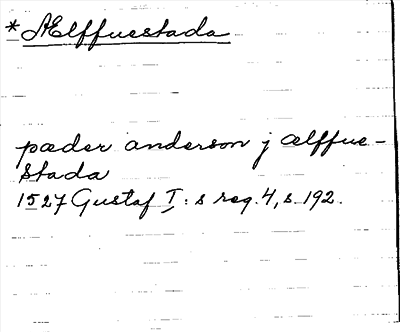 * Ælffuestada
pæder anderson j ælffue-
stada
1527 Gustaf I:s reg. 4, s. 192.